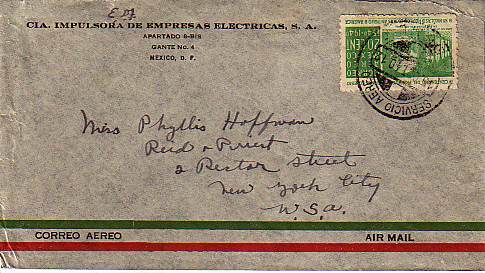 CIA. IMPULSORA DE EMPRESAS ELECTRICAS, S. A.
APARTADO 8-BIS
GANTE No. 4
MEXICO, D. F.
CORREO
MEXICO
SERVICIO AEREO
Miss Phyllis Hoffman
Reid &
2 Rector Street
New York City
U.S.A.
CORREO AEREO
AIR MAIL